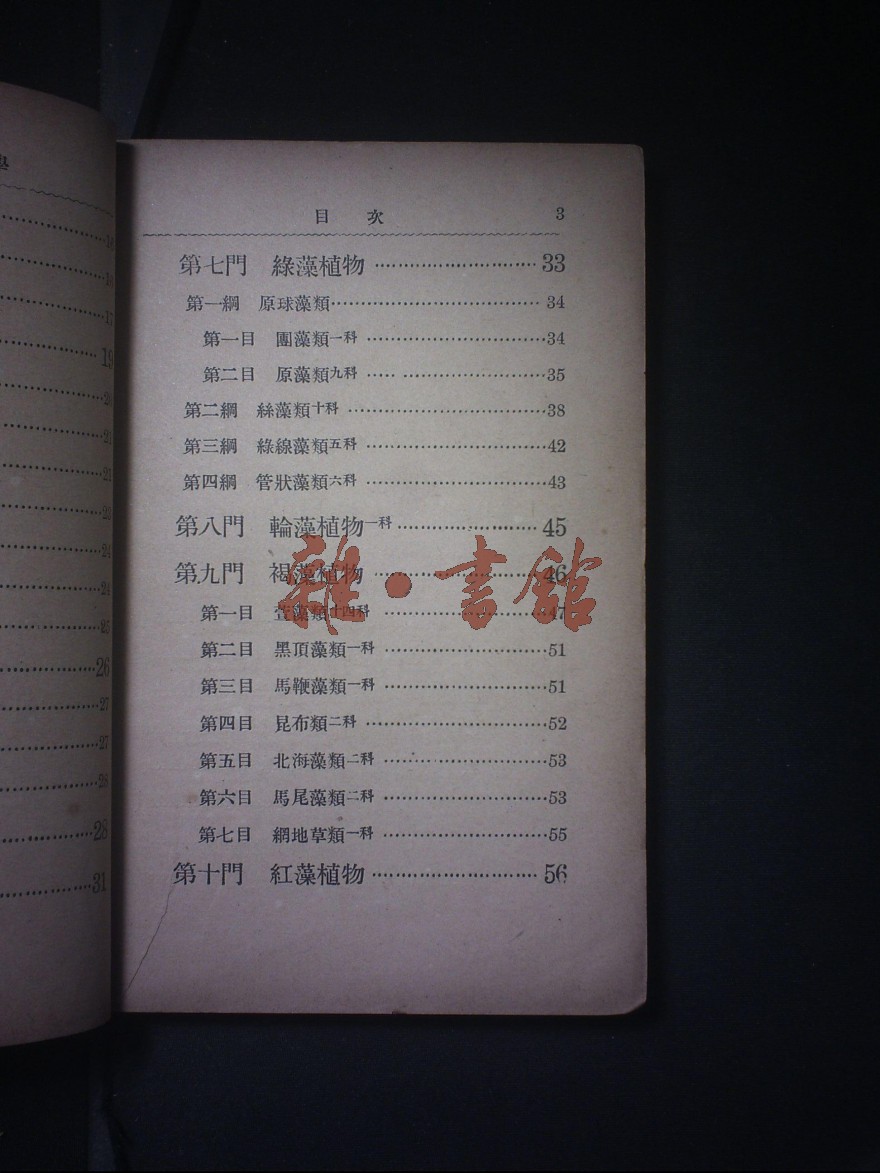 學
16
16
17
19
20
21
21
23
24
24
25
26
27
27
28
28
31
目次 3
第七門 綠藻植物 ………………………… 33
第一綱 原球藻類………………………………… 34
第一目 團藻類一科 ……………………………34
第二目 原藻類九科 …… ………………………35
第二綱 絲藻類十科 ………………………………38
第三綱 綠線藻類五科 ……………………………42
第四綱 管狀藻類六科 ……………………………43
第八門 輪藻植物一科……………………… 45
第九門 褐藻植物 ………………………… 46
第一目 萱藻類十四科 …………………………47
第二目 黑頂藻類一科 …………………………51
第三目 馬鞭藻類一科 …………………………51
第四目 昆布類二科 ……………………………52
第五目 北海藻類二科 …………………………53
第六目 馬尾藻類二科 …………………………53
第七目 網地草類一科 …………………………55
第十門 紅藻植物 ………………………… 56
雜·書館